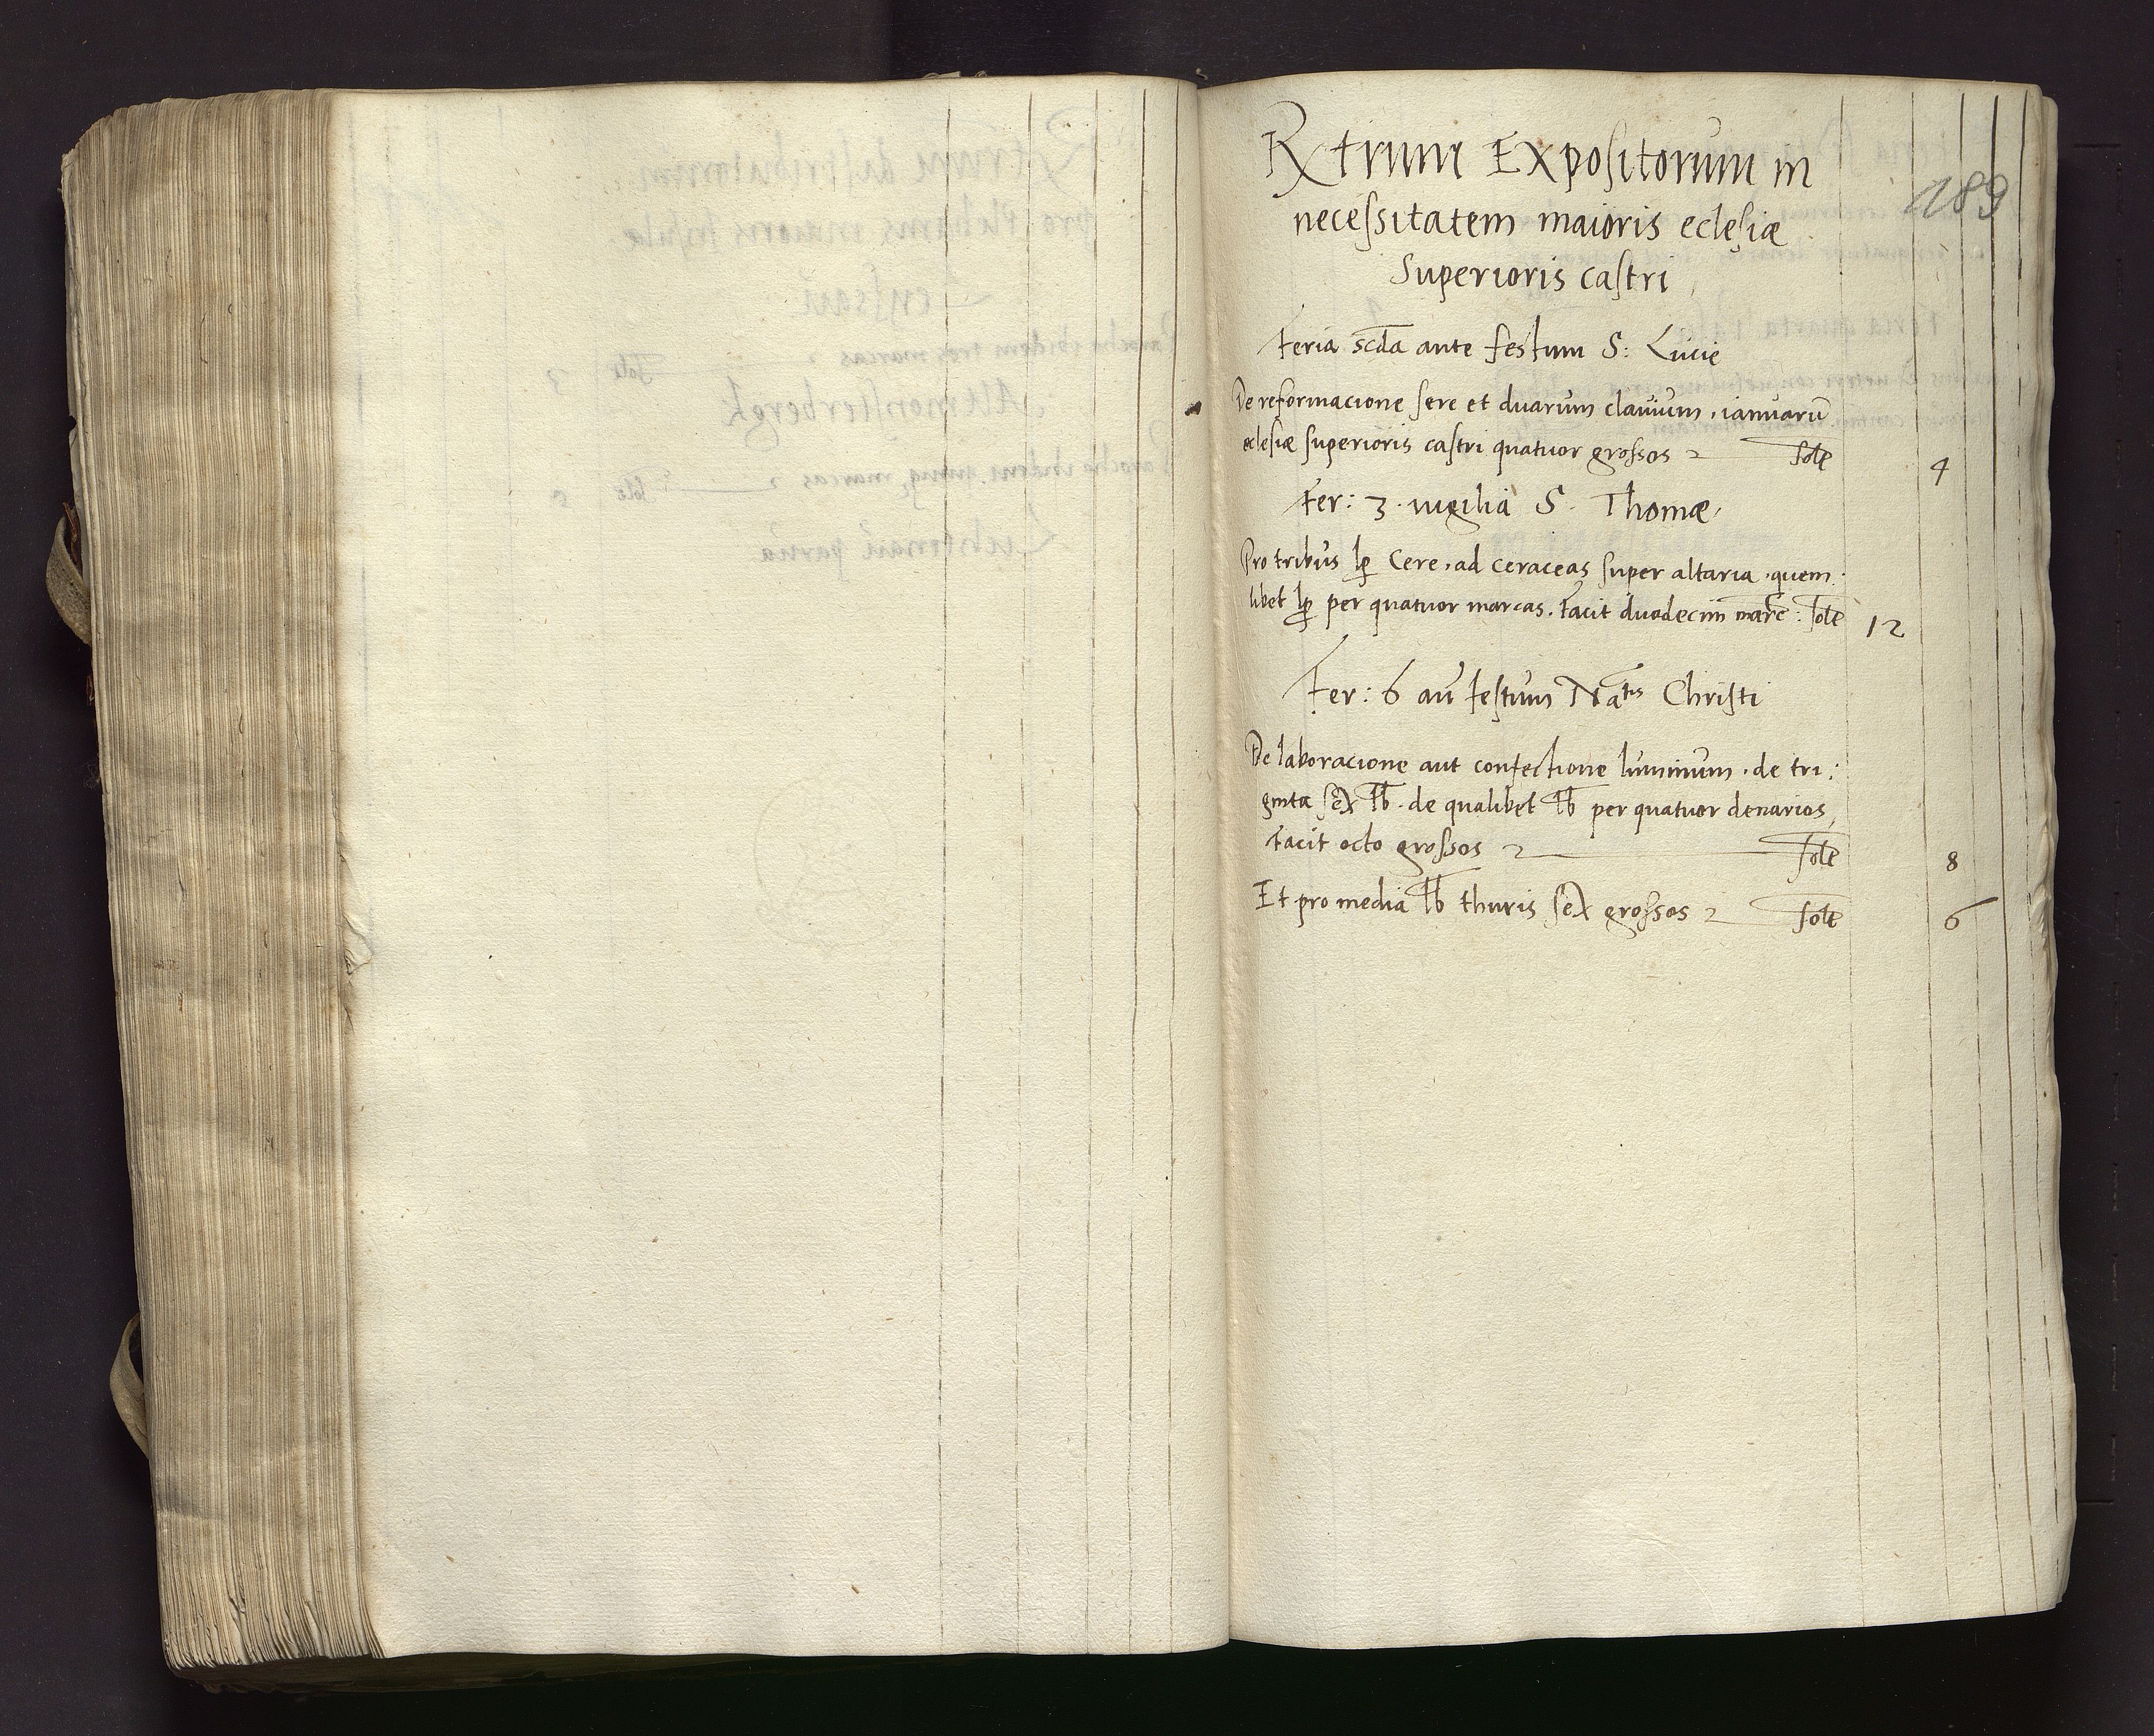 Rxtrum Expositorum in
189
necessitatem maioris eclesiæ
Superioris castri
Feria scda ante festum S: Lucię
De reformacione sere et duarum clavium, ianuarū
eclesiæ superioris castri quatuor grossos
4
Fer: 3 vigilia S. Thomæ
Pro tribus lp Cere, ad ceraceas super altaria, quem
libet lp per quatuor marcas. Facit duodecim marc:
12
Fer: 6 añ festum Natis Christi
De laboracione aut confectione luminum. de tri:
ginta sex lb. de qualibet lb per quatuor denarios,
Facit octo grossos
8
Et pro media lb thuris sex grossos
6